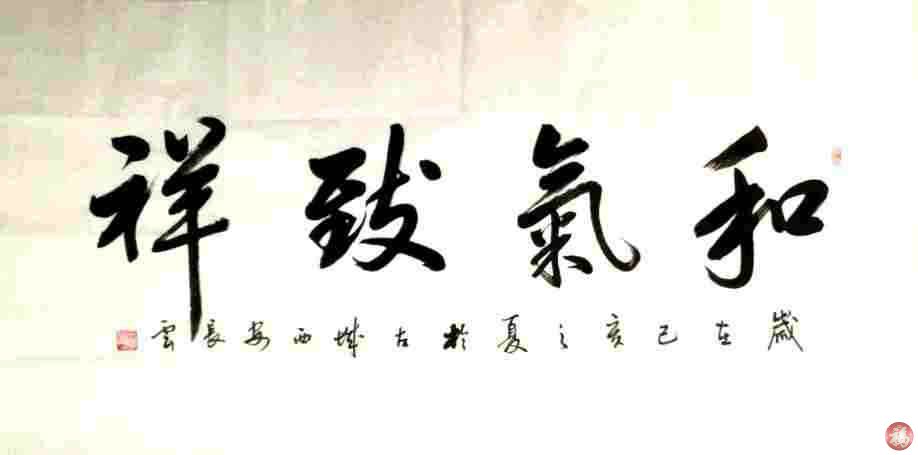 和氣致祥
歲在己亥之夏於古城西安長雲
福